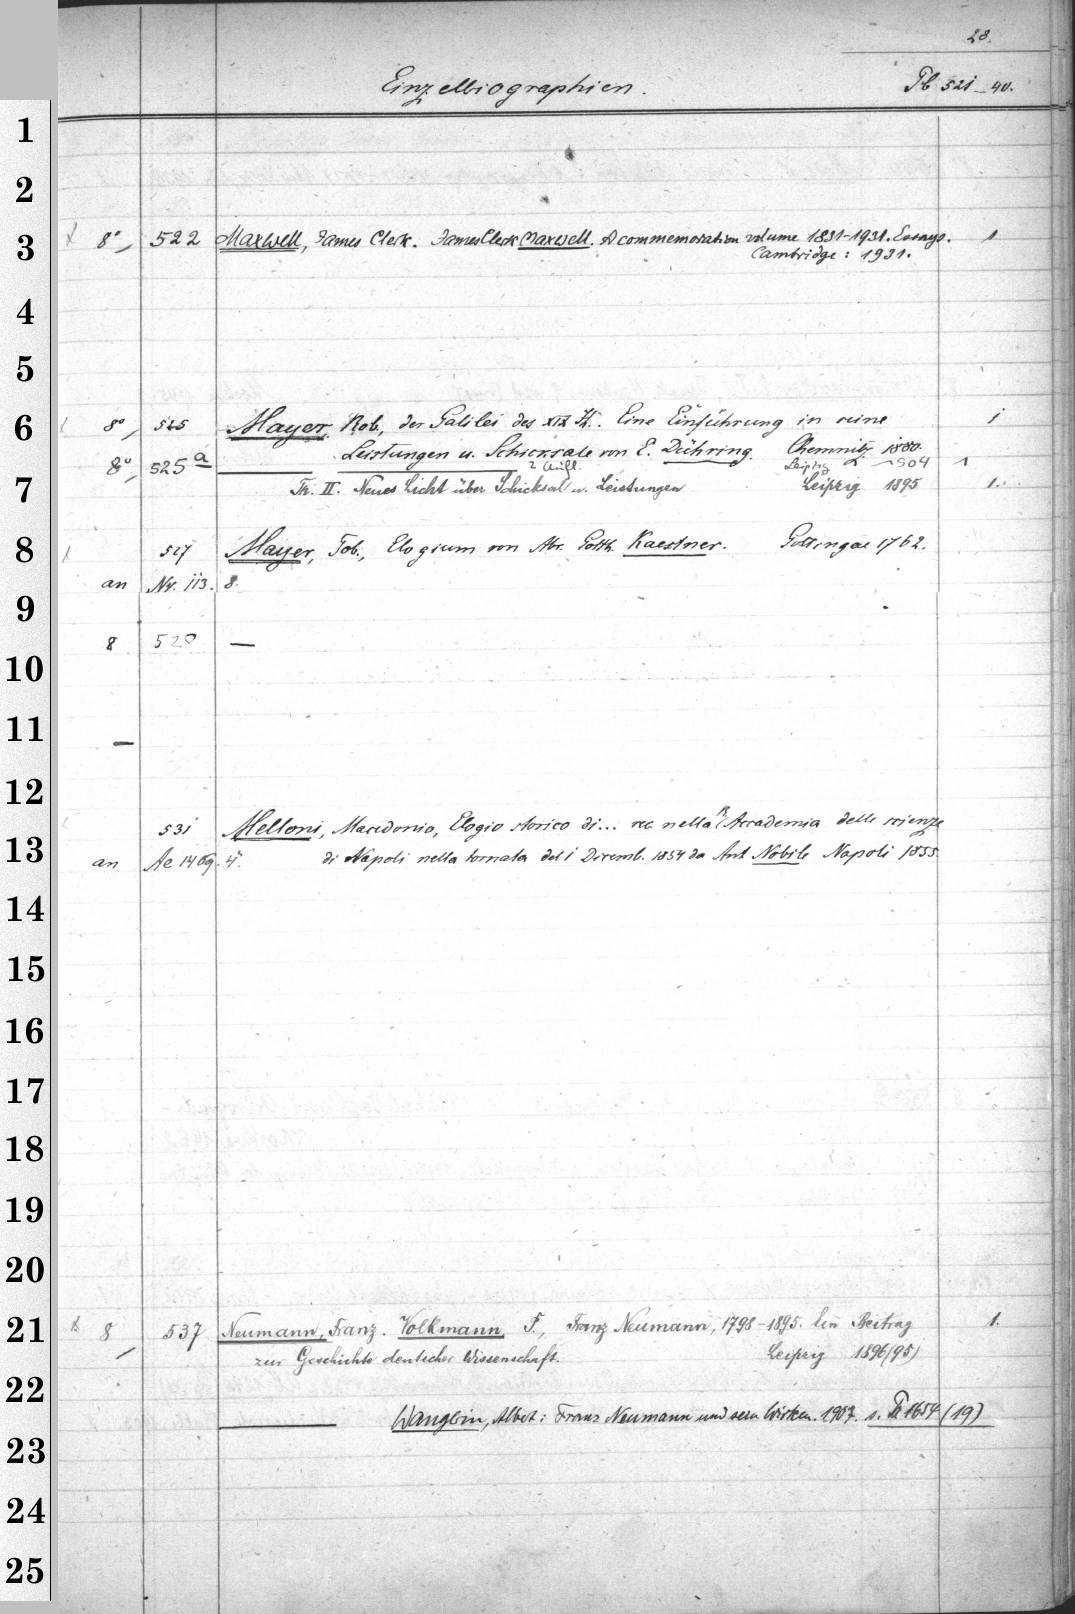 28.
Einzelbiographien. Tb 521-40.
1
2
3 8° 522 Maxwell, James Clerk. James Clerk Maxwell. A commemoration volume 1831-1931. Essays. 1
Cambridge: 1931.
4
5
6 8° 525 Mayer, Rob., der Galilei des XIX Jh. Eine Einführung in seine 1
Leistungen u. Schicksale von E. Dühring. Chemnitz 1880.
8° 525a 2 Aufl. Leipzig 1904 1
7 Th. II. Neues Licht über Schicksal u. Leistungen Leipzig 1895 1.
8 527 Mayer, Tob., Elogium von Abr. Gotth. Kaestner. Gottingae 1762.
an Nr. 113. 8.
9
8 528 —
10
11 —
12
531 Melloni, Macedonio, Elogio storico di... rec nella R. Accademia delle scienze
13 an Ae 1469. 4°. di Napoli nella tornata del 1 Dicemb. 1854 da Ant Nobile Napoli 1855.
14
15
16
17
18
19
20
21 8 537 Neumann, Franz. Volkmann, F., Franz Neumann, 1798-1895. Ein Beitrag 1.
zur Geschichte deutscher Wissenschaft. Leipzig 1896(95)
22
Wangerin, Albert: Franz Neumann und sein Wirken. 1907. s. 1654 (19)
23
24
25